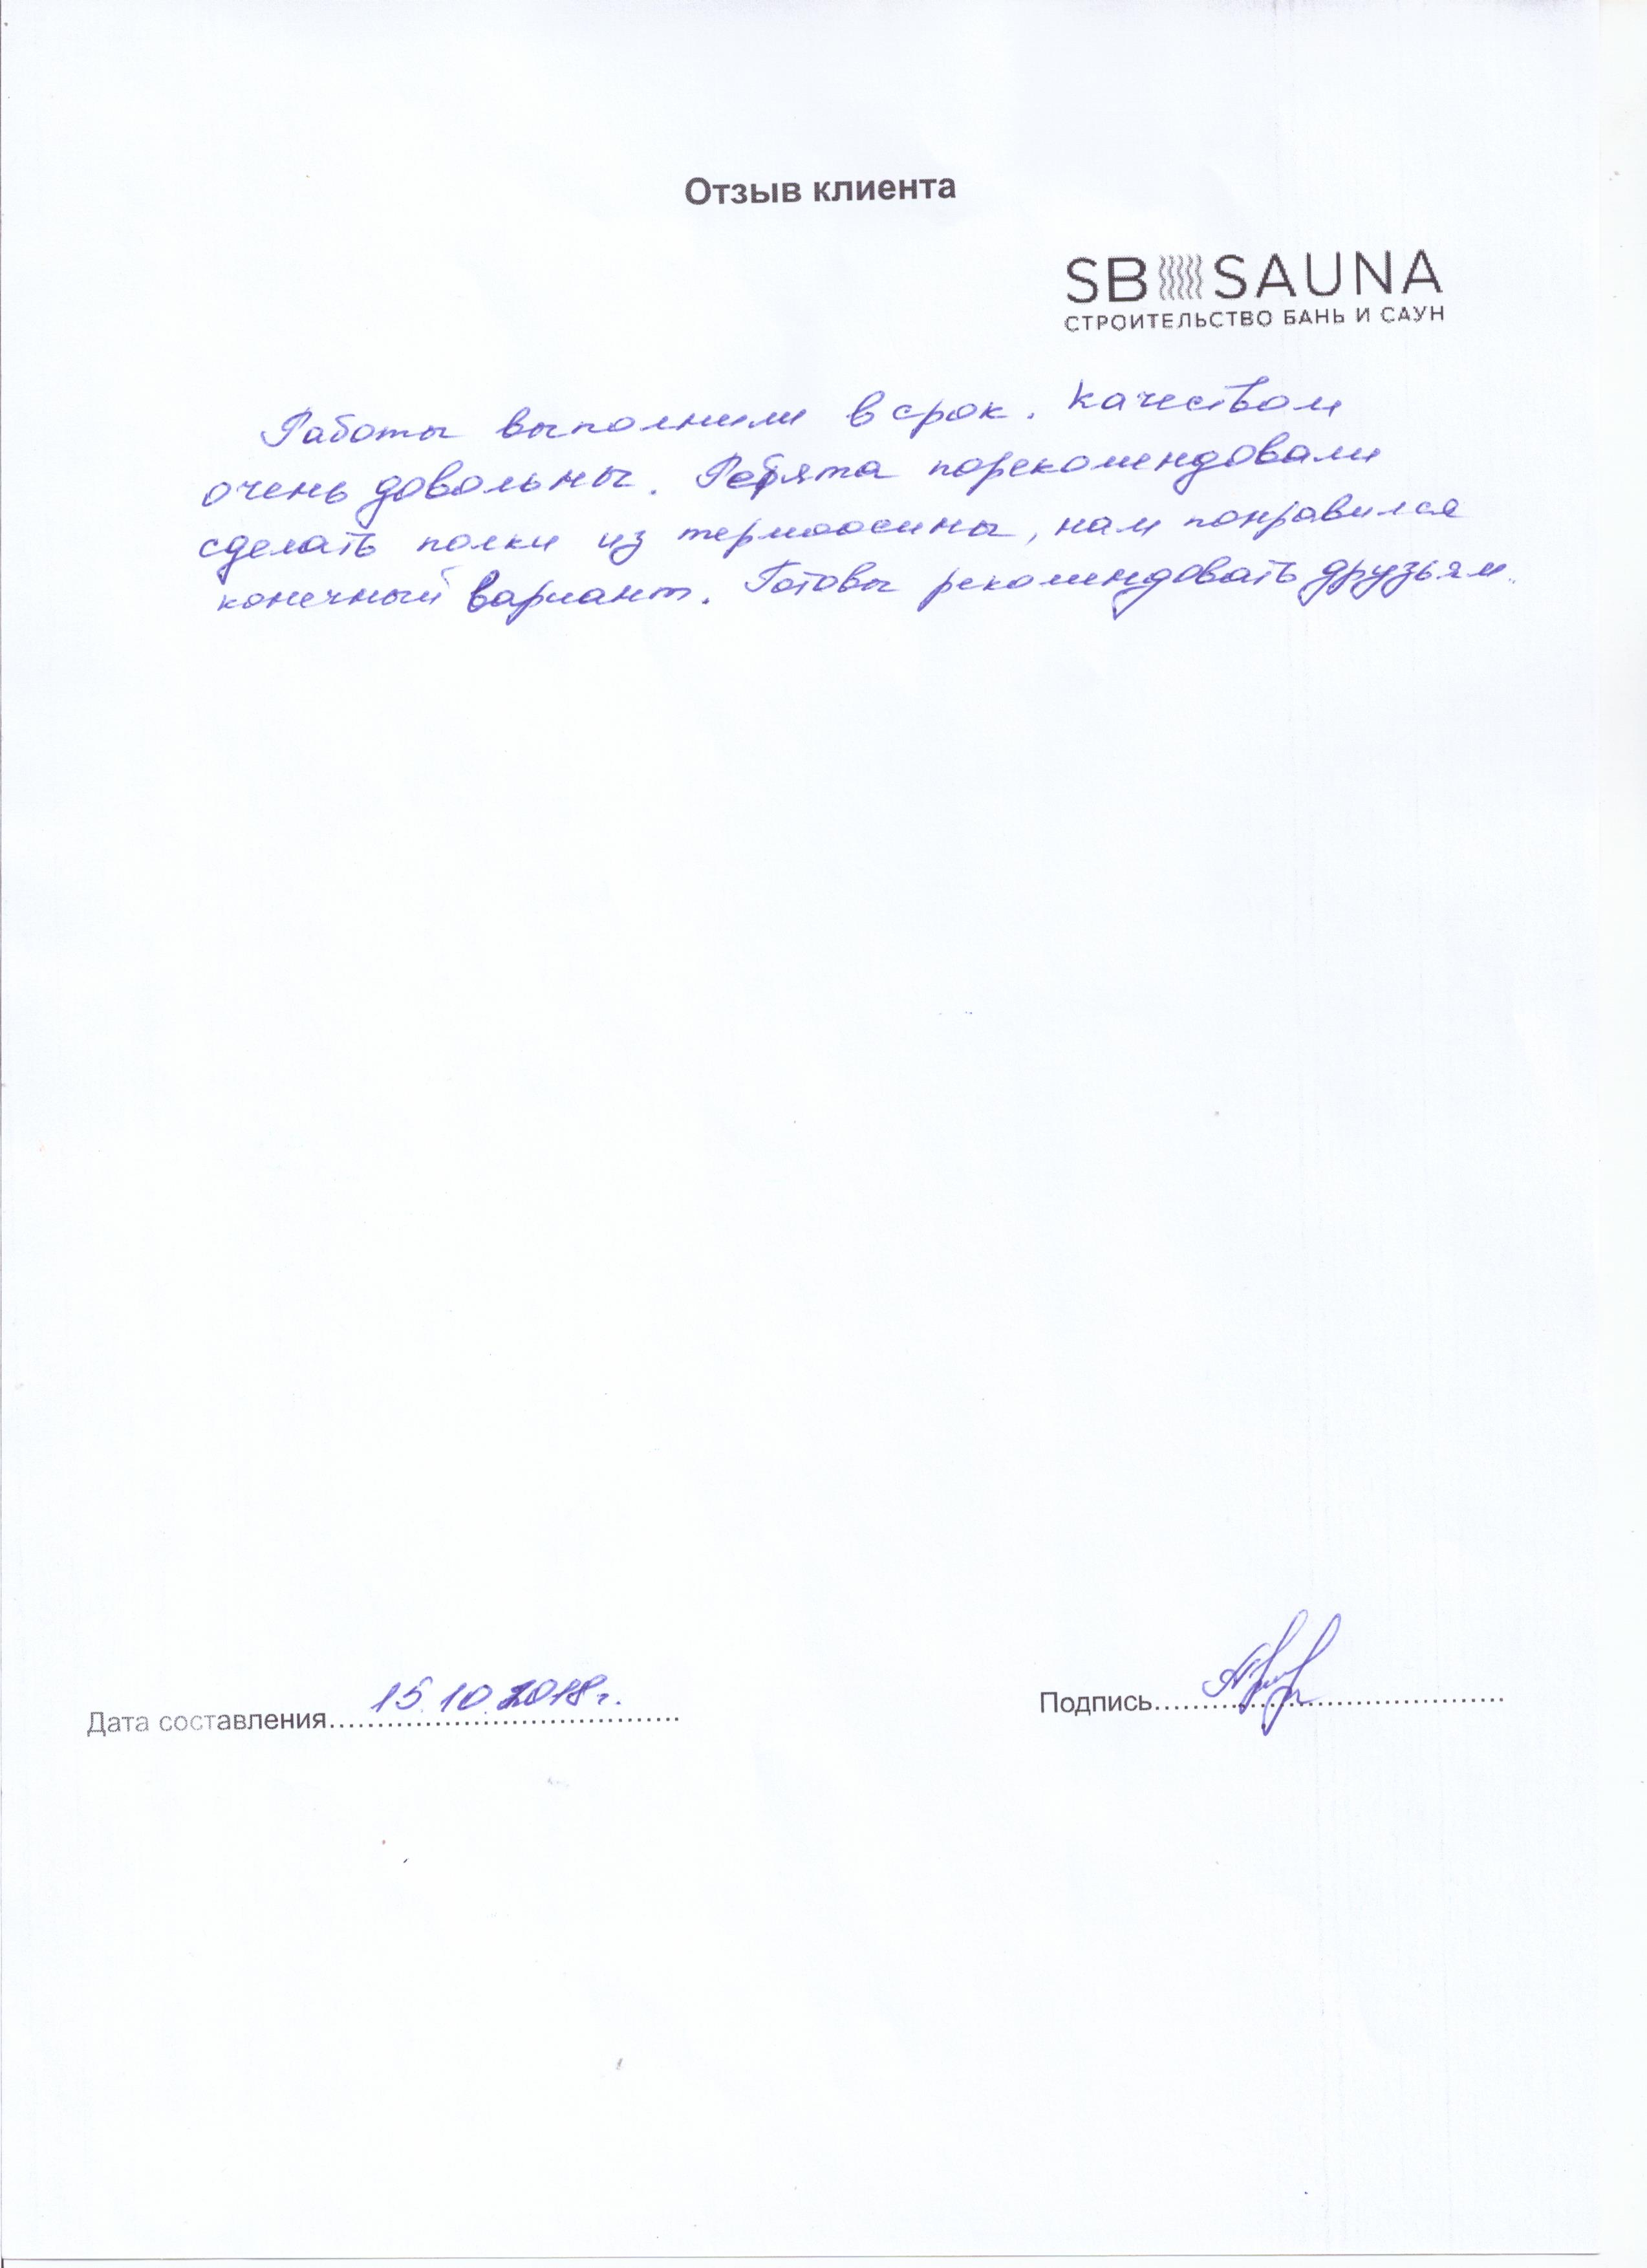 Отзыв клиента
SB SAUNA
СТРОИТЕЛЬСТВО БАНЬ И САУН
Работы выполнили в срок. Качеством
очень довольны. Ребята порекомендовали
сделать полки из термоосины, нам понравился
конечный вариант. Готовы рекомендовать друзьям.
Дата составления 15.10.2018г.
Подпись